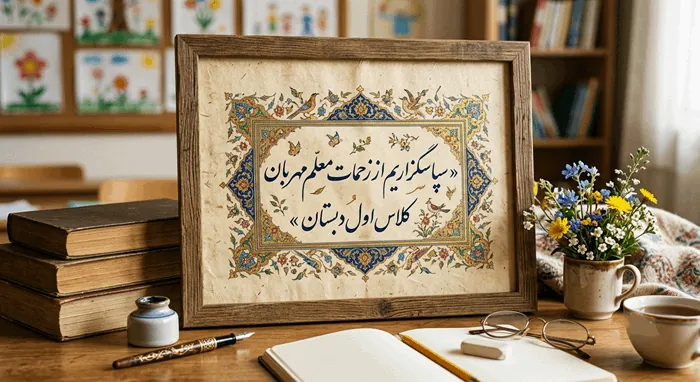 «سپاسگزاریم از زحمات معلّم مهربان
کلاس اول دبستان»